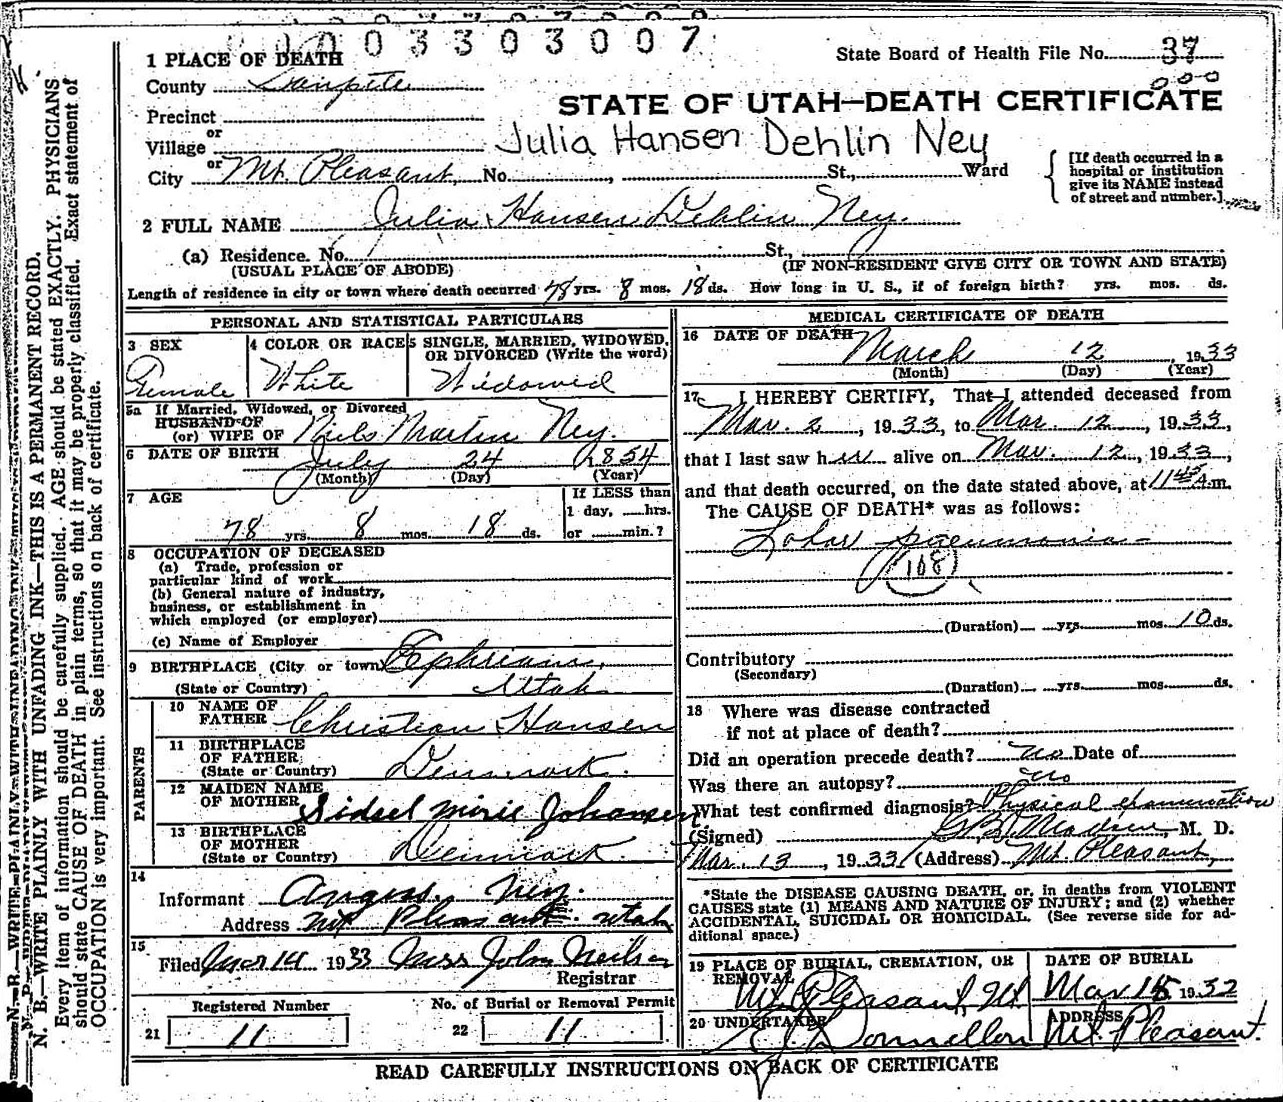 0003303007
State Board of Health File No. 37
1 PLACE OF DEATH
County Sanpete
STATE OF UTAH—DEATH CERTIFICATE
Precinct
or
Village
Julia Hansen Dehlin Ney
or
City Mt. Pleasant, No. , St., Ward
[If death occurred in a
hospital or institution
give its NAME instead
of street and number.]
2 FULL NAME Julia Hansen Dehlin Ney.
(a) Residence. No. St.,
(USUAL PLACE OF ABODE) (IF NON-RESIDENT GIVE CITY OR TOWN AND STATE)
Length of residence in city or town where death occurred 78 yrs. 8 mos. 18 ds. How long in U. S., if of foreign birth? yrs. mos. ds.
PERSONAL AND STATISTICAL PARTICULARS
3 SEX
Female
4 COLOR OR RACE
White
5 SINGLE, MARRIED, WIDOWED,
OR DIVORCED (Write the word)
Widowed
5a If Married, Widowed, or Divorced
HUSBAND OF
(or) WIFE OF Niels Martin Ney.
6 DATE OF BIRTH July 24 1854
(Month) (Day) (Year)
7 AGE
78 yrs. 8 mos. 18 ds.
If LESS than
1 day, hrs.
or min.?
8 OCCUPATION OF DECEASED
(a) Trade, profession or
particular kind of work
(b) General nature of industry,
business, or establishment in
which employed (or employer)
(c) Name of Employer
9 BIRTHPLACE (City or town) Ephriam,
(State or Country) Utah
PARENTS
10 NAME OF
FATHER Christian Hansen
11 BIRTHPLACE
OF FATHER
(State or Country) Denmark.
12 MAIDEN NAME
OF MOTHER Sidsel Mirie Johansen
13 BIRTHPLACE
OF MOTHER
(State or Country) Denmark.
14
Informant Angus Ney.
Address Mt Pleasant. Utah
15
Filed Mar 14 1933 Mrs John Neilsen
Registrar
Registered Number
21 11
No. of Burial or Removal Permit
22 11
MEDICAL CERTIFICATE OF DEATH
16 DATE OF DEATH March 12, 1933
(Month) (Day) (Year)
17 I HEREBY CERTIFY, That I attended deceased from
Mar. 2, 1933, to Mar. 12, 1933,
that I last saw her alive on Mar. 12, 1933,
and that death occurred, on the date stated above, at 11 45 A.m.
The CAUSE OF DEATH* was as follows:
Lobar pneumonia
108
(Duration) yrs. mos. 10 ds.
Contributory
(Secondary)
(Duration) yrs. mos. ds.
18 Where was disease contracted
if not at place of death?
Did an operation precede death? no Date of
Was there an autopsy? no
What test confirmed diagnosis? Physical examination
(Signed) Madsen, M. D.
Mar. 13, 1933 (Address) Mt Pleasant,
*State the DISEASE CAUSING DEATH, or, in deaths from VIOLENT
CAUSES state (1) MEANS AND NATURE OF INJURY; and (2) whether
ACCIDENTAL, SUICIDAL OR HOMICIDAL. (See reverse side for ad-
ditional space.)
19 PLACE OF BURIAL, CREMATION, OR
REMOVAL
Mt Pleasant, Ut
DATE OF BURIAL
Mar 15 1932
20 UNDERTAKER
ADDRESS
Mt. Pleasant.
READ CAREFULLY INSTRUCTIONS ON BACK OF CERTIFICATE
N. B.—WRITE PLAINLY WITH UNFADING INK—THIS IS A PERMANENT RECORD.
Every item of information should be carefully supplied. AGE should be stated EXACTLY. PHYSICIANS
should state CAUSE OF DEATH in plain terms, so that it may be properly classified. Exact statement of
OCCUPATION is very important. See instructions on back of certificate.